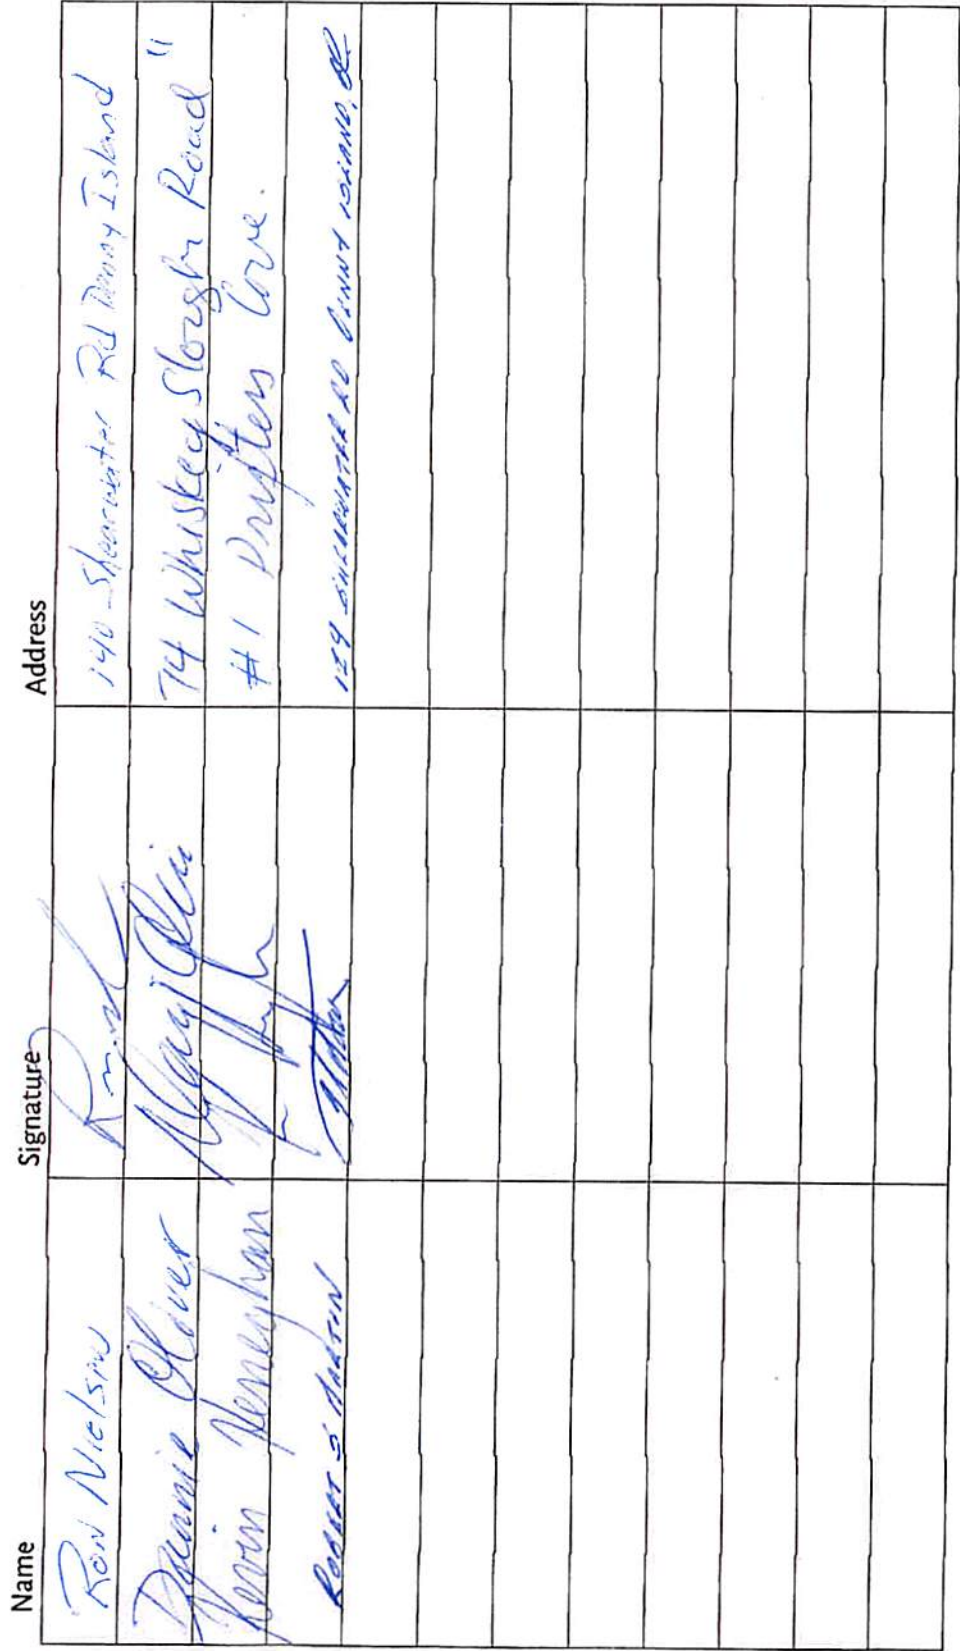 Name Signature Address
Ron Nielsen 140 Shearwater Rd Denny Island
Oliver 74 Whiskey Slough Road "
Kevin Heneghan #1 Drifters Cove.
ROBERT S MARTIN SHEARWATER RD DENNY ISLAND, BC